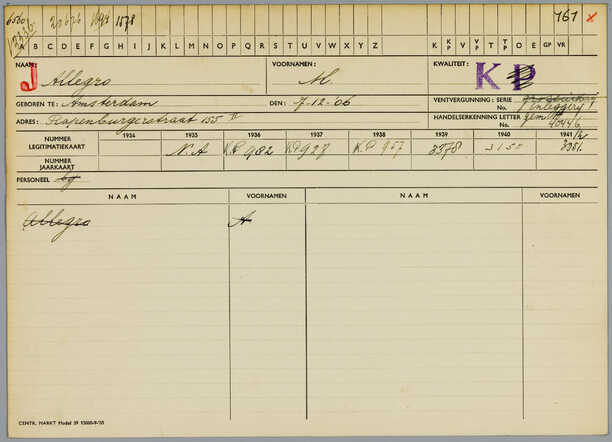 1578 161 x
A B C D E F G H I J K L M N O P Q R S T U V W X Y Z K K P V V P T T P O E GP VR
J NAAM: Allegro VOORNAMEN: M. KWALITEIT: K P
GEBOREN TE: Amsterdam DEN: 7-12-'06 VENTVERGUNNING: SERIE No.
ADRES: Rapenburgerstraat 155 II HANDELSERKENNING LETTER No. 40446
1934 1935 1936 1937 1938 1939 1940 1941
NUMMER LEGITIMATIEKAART N.A K.P 982 K.P 927 K.P 957 3578 3150
NUMMER JAARKAART
PERSONEEL
NAAM VOORNAMEN NAAM VOORNAMEN
Allegro A
CENTR. MARKT Model 39 15000-9-'35